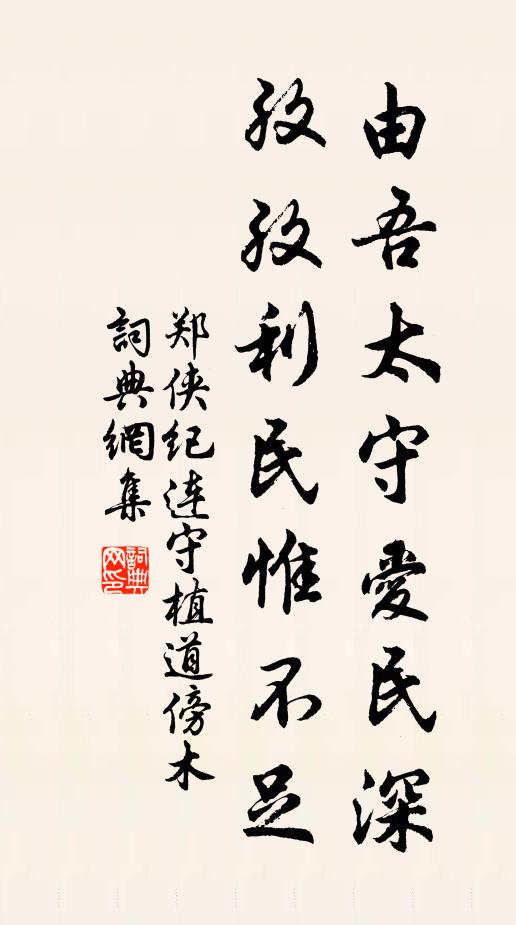 由吾太守愛民深
孜孜利民惟不足
郑侠纪连守植道傍木
詞典網集
詞典网印